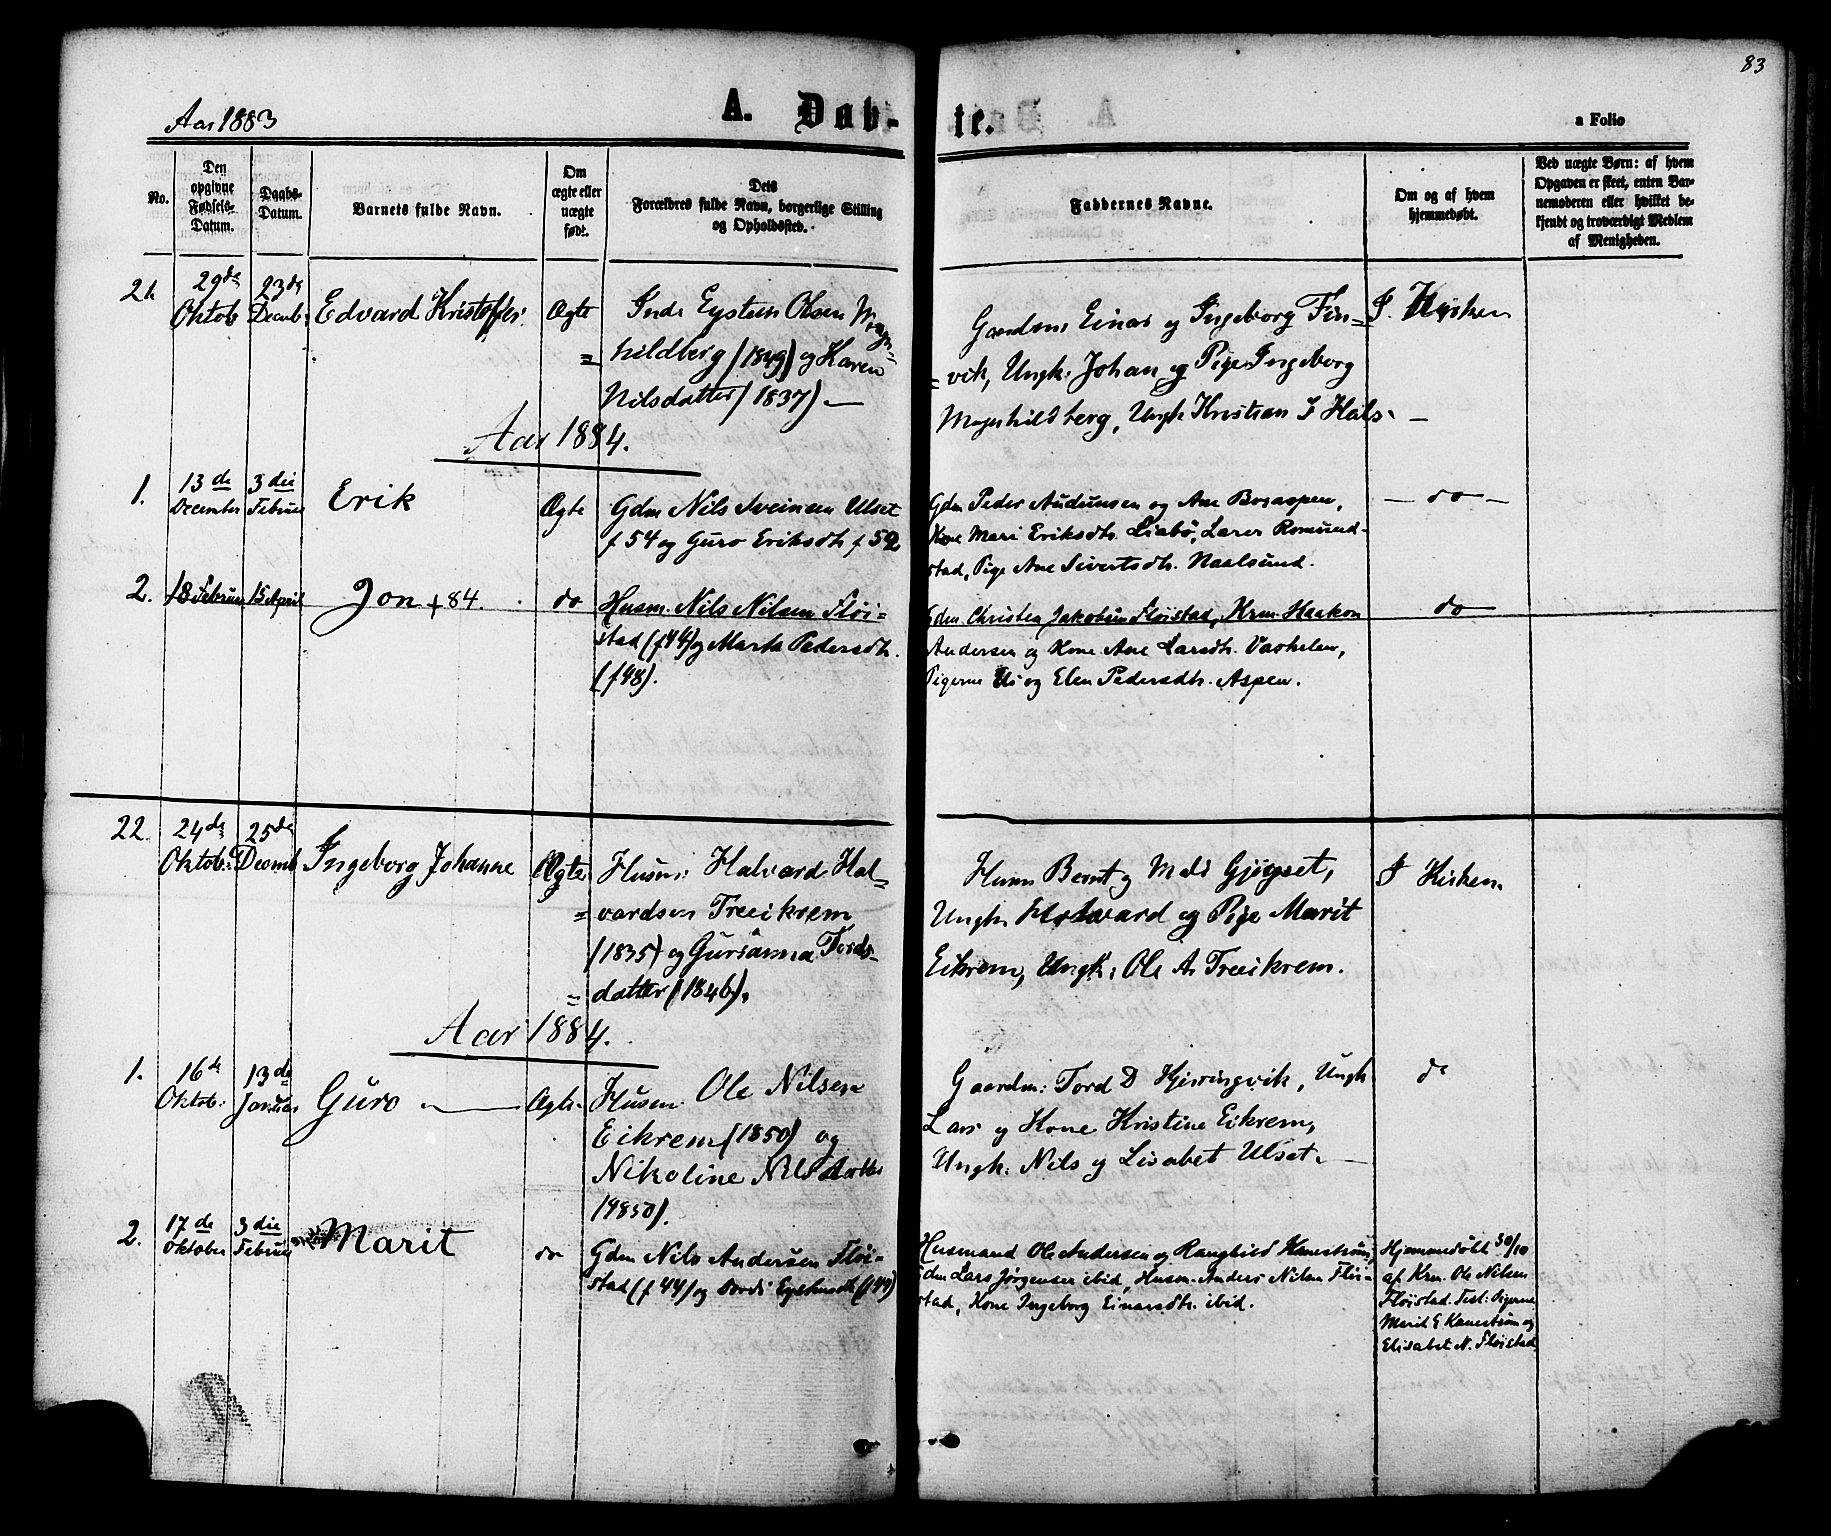 83
Aar 1883
A. Døb-
te.
a Folio
No.
Den opgivne Fødsels-Datum.
Daabs-Datum.
Barnets fulde Navn.
Om ægte eller uægte født.
Dets Forældres fulde Navn, borgerlige Stilling og Opholdssted.
Faddernes Navne.
Om og af hvem hjemmedøbt.
Ved uægte Børn: af hvem Opgaven er skeet, enten Barnemoderen eller hvilket bekjendt og troværdigt Medlem af Menigheden.
21
29de Oktob
23de Decmb:
Edvard Kristoffer.
Ægte
Indr Eystein Olsen Magn=
=hildberg (1849) og Karen
Nilsdatter (1837) —
Gaardm Einar og Ingeborg Fin=
=vik, Ungk: Johan og Pige Ingeborg
Magnhildberg, Ungk Kristian I Hals. —
I Kirken
Aar 1884.
1.
13de December
3die Februar
Erik
Ægte
Gdm Nils Sveinsen Ulset
f 54 og Guro Eriksdtr f 52
Gdm Peder Audunsen og Ane Bogaspen,
Kone Mari Eriksdtr. Liabø, Lærer Romund-
stad, Pige Ane Sivertsdtr. Naalsund.
— do —
2.
18 Februar
15 April
Jon + 84.
do
Husm. Nils Nilsen Fløi-
stad (f 44) og Marta Pedersdtr.
(f 48).
Gdm Christen Jakobsen Fløistad, Krm. Haakon
Andersen og Kone Ane Larsdtr. Varhelen,
Pigerne Eli og Elen Pedersdtr. Aspen.
do
22
24de Oktob:
25de Decmb
Ingeborg Johanne
Ægte
Husm: Halvard Hal=
=vardsen Treeikrem
(1835) og Gursanna Tords-
=datter (1846).
Husm Bernt og Mali Gjøgset,
Ungk. Halvard og Pige Marit
Eikrem, Ungk: Ole A. Treeikrem.
I Kirken.
Aar 1884.
1.
16de Oktob:
13de Januar
Guro
Ægte
Husm Ole Nilsen
Eikrem (1850) og
Nikoline Nilsdatter
(1850).
Gaardm: Tord D Hjerringvik, Ungk
Lars og Kone Kristine Eikrem,
Ungk: Nils og Lisabet Ulset. —
do
2.
17de Oktober
3die Februar
Marit
do
Gdm Nils Andersen Fløi-
stad (f 44) og Dordi Eystensdtr (f 44)
Husmand Ole Andersen og Ranghild Kanestrøm,
Gdm Lars Jørgensen ibid, Husm. Anders Nilsen Fløi-
stad, Kone Ingeborg Einarsdtr. ibid.
Hjemmedøbt 30/10
af Krm. Ole Nilsen
Fløistad. Test: Pigerne
Marit E Kanestrøm og
Elisabet N. Fløistad